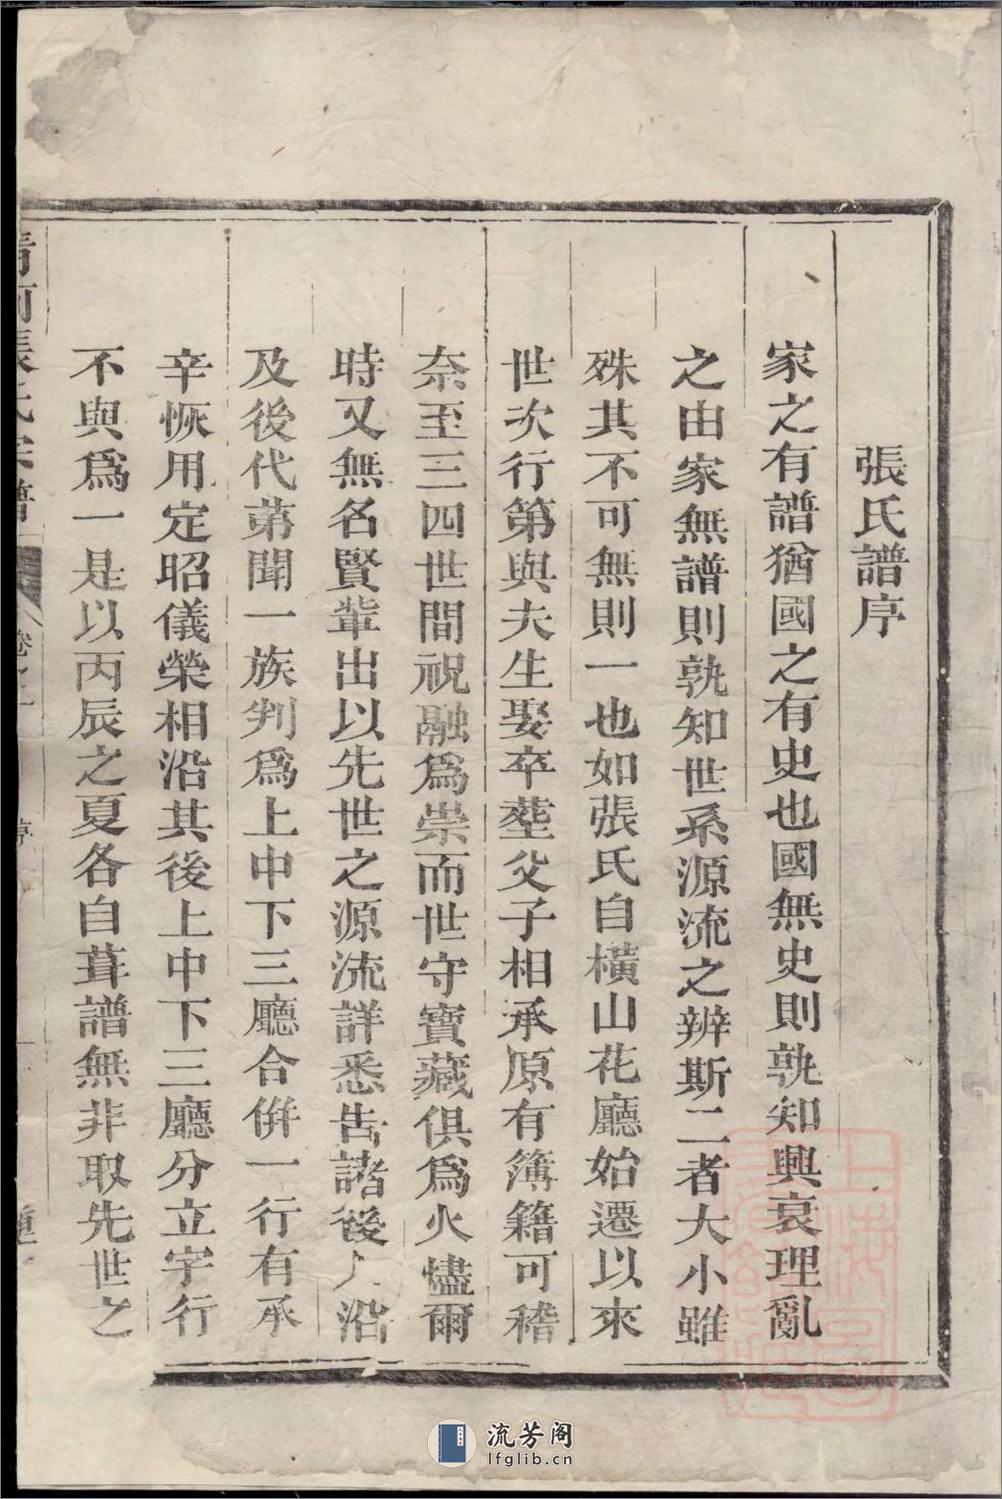 張氏譜序
家之有譜猶國之有史也國無史則孰知興衰理亂
之由家無譜則孰知世系源流之辨斯二者大小雖
殊其不可無則一也如張氏自橫山花廳始遷以來
世次行第與夫生娶卒塟父子相承原有簿籍可稽
奈至三四世間祝融爲崇而世守寶藏俱爲火燼爾
時又無名賢輩出以先世之源流詳悉告諸後人沿
及後代苐聞一族判爲上中下三廳合倂一行有承
辛恢用定昭儀榮相沿其後上中下三廳分立字行
不與爲一是以丙辰之夏各自葺譜無非取先世之
清河張氏宗譜 卷之一 序
流芳阁
lfglib.cn